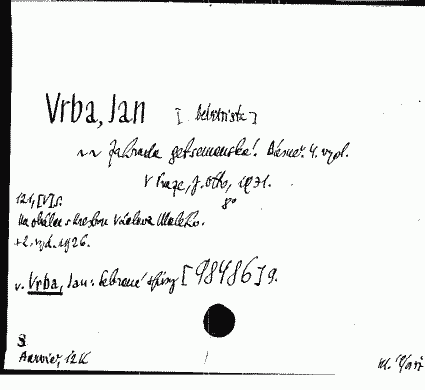 Vrba, Jan [beletrista]
~~ Zahrada getsemanská. Básně. 4. vyd.
V Praze, J. Otto, 1931.
8°
121, [V] s.
Na obálce kresba Václava Malého.
+2. vyd. 1926.
v. Vrba, Jan: Sebrané spisy [98486] 9.
8
12 K